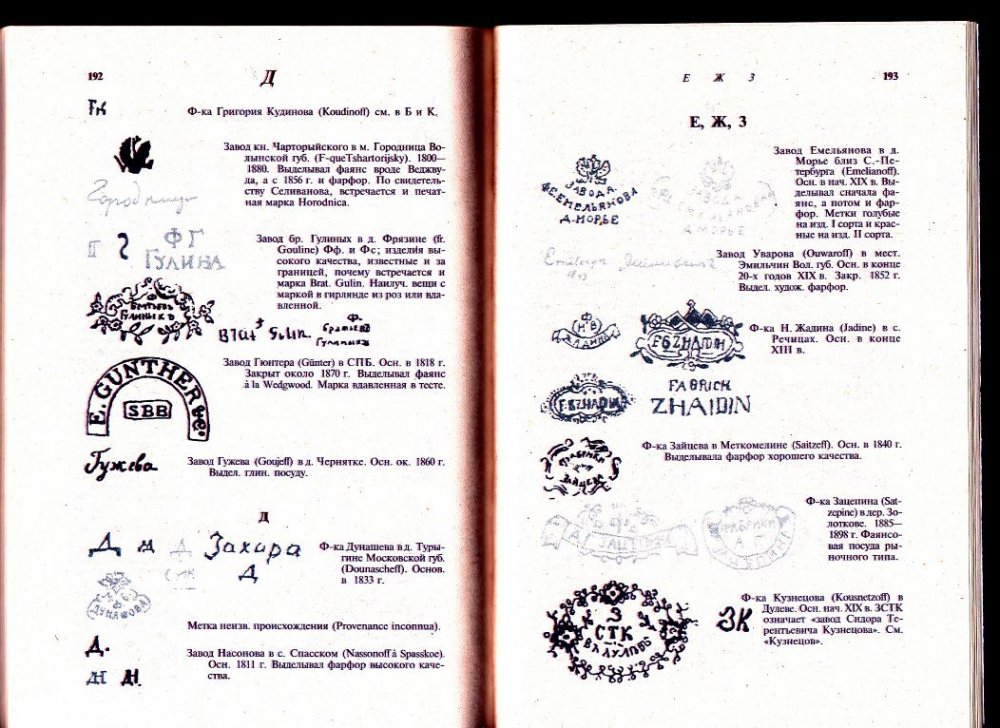 192
Д
ГК
Ф-ка Григория Кудинова (Koudinoff) см. в Б и К.
Завод кн. Чарторыйского в м. Городница Во-
лынской губ. (F-queTshartorijsky). 1800—
1880. Выделывал фаянс вроде Веджву-
да, а с 1856 г. и фарфор. По свидетель-
ству Селиванова, встречается и печат-
ная марка Horodnica.
Городница
Г
ФГ
ГУЛИНА
Завод бр. Гулиных в д. Фрязине (fr.
Gouline) Фф. и Фс; изделия вы-
сокого качества, известные и за
границей, почему встречается и
марка Brat. Gulin. Наилуч. вещи с
маркой в гирлянде из роз или вда-
вленной.
Ф.
Brat Gulin.
Ф.
Завод Гюнтера (Günter) в СПБ. Осн. в 1818 г.
Закрыт около 1870 г. Выделывал фаянс
à la Wedgwood. Марка вдавленная в тесте.
E. GUNTHER & C°
SBB
Гужева
Завод Гужева (Goujeff) в д. Чернятке. Осн. ок. 1860 г.
Выдел. глин. посуду.
Д
Д
Д
Захара
Д
Ф-ка Дунашева в д. Туры-
гине Московской губ.
(Dounascheff). Основ.
в 1833 г.
Ф
ДУНАШОВА
Метка неизв. происхождения (Provenance inconnua).
Д.
Завод Насонова в с. Спасском (Nassonoff à Spasskoe).
Осн. 1811 г. Выделывал фарфор высокого каче-
ства.
Е Ж З
193
Е, Ж, З
ЗАВОДА
ФС.ЕМЕЛЬЯНОВА
Д. МОРЬЕ
Завод Емельянова в д.
Морье близ С.-Пе-
тербурга (Emelianoff).
Осн. в нач. XIX в. Вы-
делывал сначала фа-
янс, а потом и фар-
фор. Метки голубые
на изд. I сорта и крас-
ные на изд. II сорта.
Завод Уварова (Ouwaroff) в мест.
Эмильчин Вол. губ. Осн. в конце
20-х годов XIX в. Закр. 1852 г.
Выдел. худож. фарфор.
Ф-ка Н. Жадина (Jadine) в с.
Речицах. Осн. в конце
XIII в.
FABRICH
ZHAIDIN
Ф-ка Зайцева в Меткомелине (Saitzeff). Осн. в 1840 г.
Выделывала фарфор хорошего качества.
Ф-ка Зацепина (Sat-
zepine) в дер. Зо-
лоткове. 1885—
1898 г. Фаянсо-
вая посуда ры-
ночного типа.
З
СТК
ВЪ ДУЛЕВѢ
ЗК
Ф-ка Кузнецова (Kousnetzoff) в
Дулеве. Осн. нач. XIX в. ЗСТК
означает «завод Сидора Те-
рентьевича Кузнецова». См.
«Кузнецов».